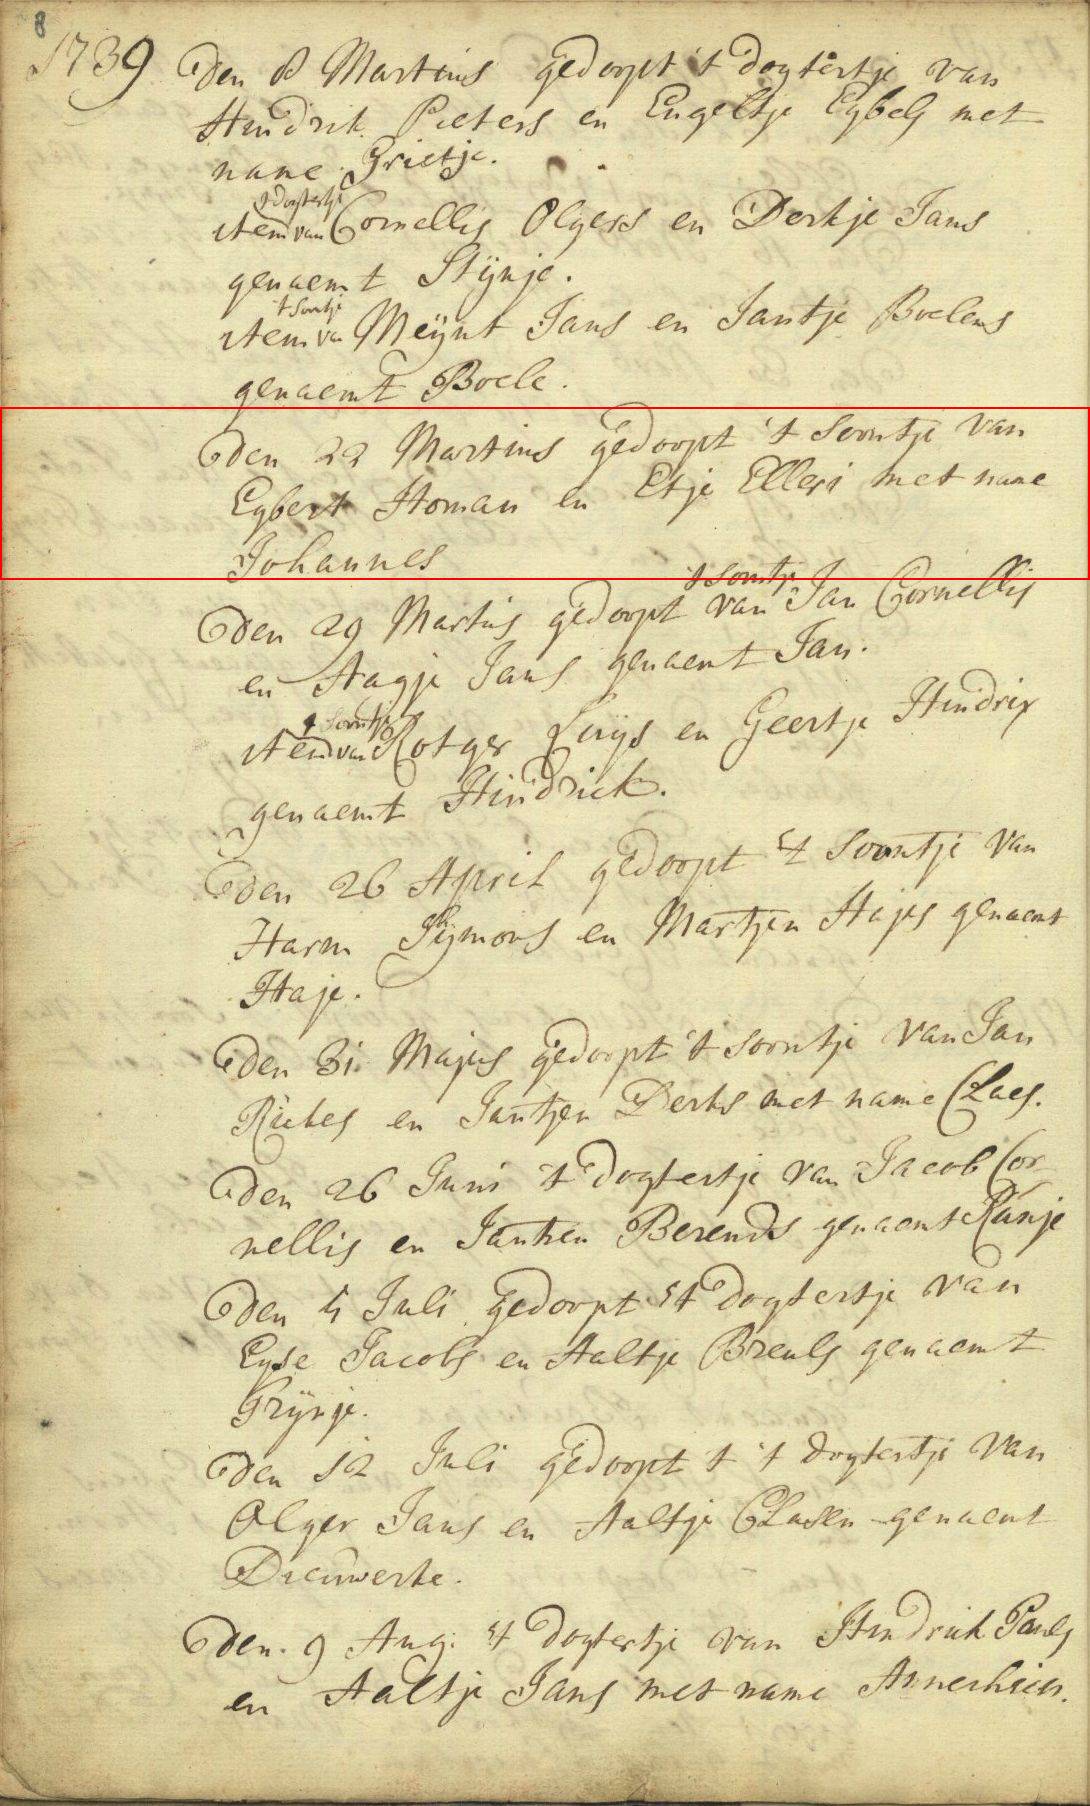 8
1739 den 8 Martius gedoopt 't dogtertje van
Hindrik Pieters en Engeltje Egbels met
name Grietje.
't dogtertje
item van Cornellis Olgers en Derkje Jans
genaemt Stijnje.
't Soontje
item van Meijnt Jans en Jantje Boelens
genaemt Boele.
den 22 Martius gedoopt 't Soontje van
Egbert Homan en Etje Ellers met name
Johannes
't Soontje
den 29 Martius gedoopt van Jan Cornellis
en Aagje Jans genaemt Jan.
't Soontje
item van Rotger Luijs en Geertje Hindrix
genaemt Hindrick.
den 26 April gedoopt 't Soontje van
Harm Sijmons en Martjen Hajes genaemt
Haje.
den 31. Majus gedoopt 't soontje van Jan
Rickes en Jantjen Derks met name Claes.
den 26 Juni 't dogtertje van Jacob Cor
nellis en Jantien Berends genaemt
den 5 Juli gedoopt 't dogtertje van
Egse Jacobs en Aaltje Breuls genaemt
Trijnje.
den 12 Juli gedoopt t 't dogtertje van
Olger Jans en Aaltje Clasen genaemt
Dieuwerke.
den. 9 Aug. 't dogtertje van Hindrik Pauls
en Aaltje Jans met name Annechien.